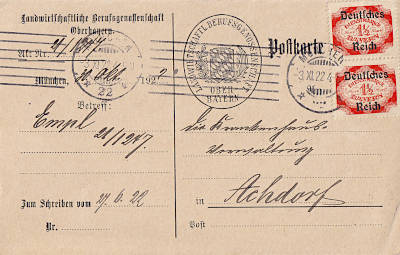 Landwirtschaftliche Berufsgenossenschaft
Oberbayern.
Akt: Nr.
München,
192
Betreff:
Empl
21/1247.
Zum Schreiben vom 27. 6. 22
Nr.
LANDWIRTSCHAFTL. BERUFSGENOSSENSCHAFT
OBER
BAYERN
Postkarte
MÜNCHEN
-3. XI. 22. 4
Deutsches
1½
Reich
Deutsches
1½
Reich
die Krankenhaus-
Verwaltung
in Achdorf
Post